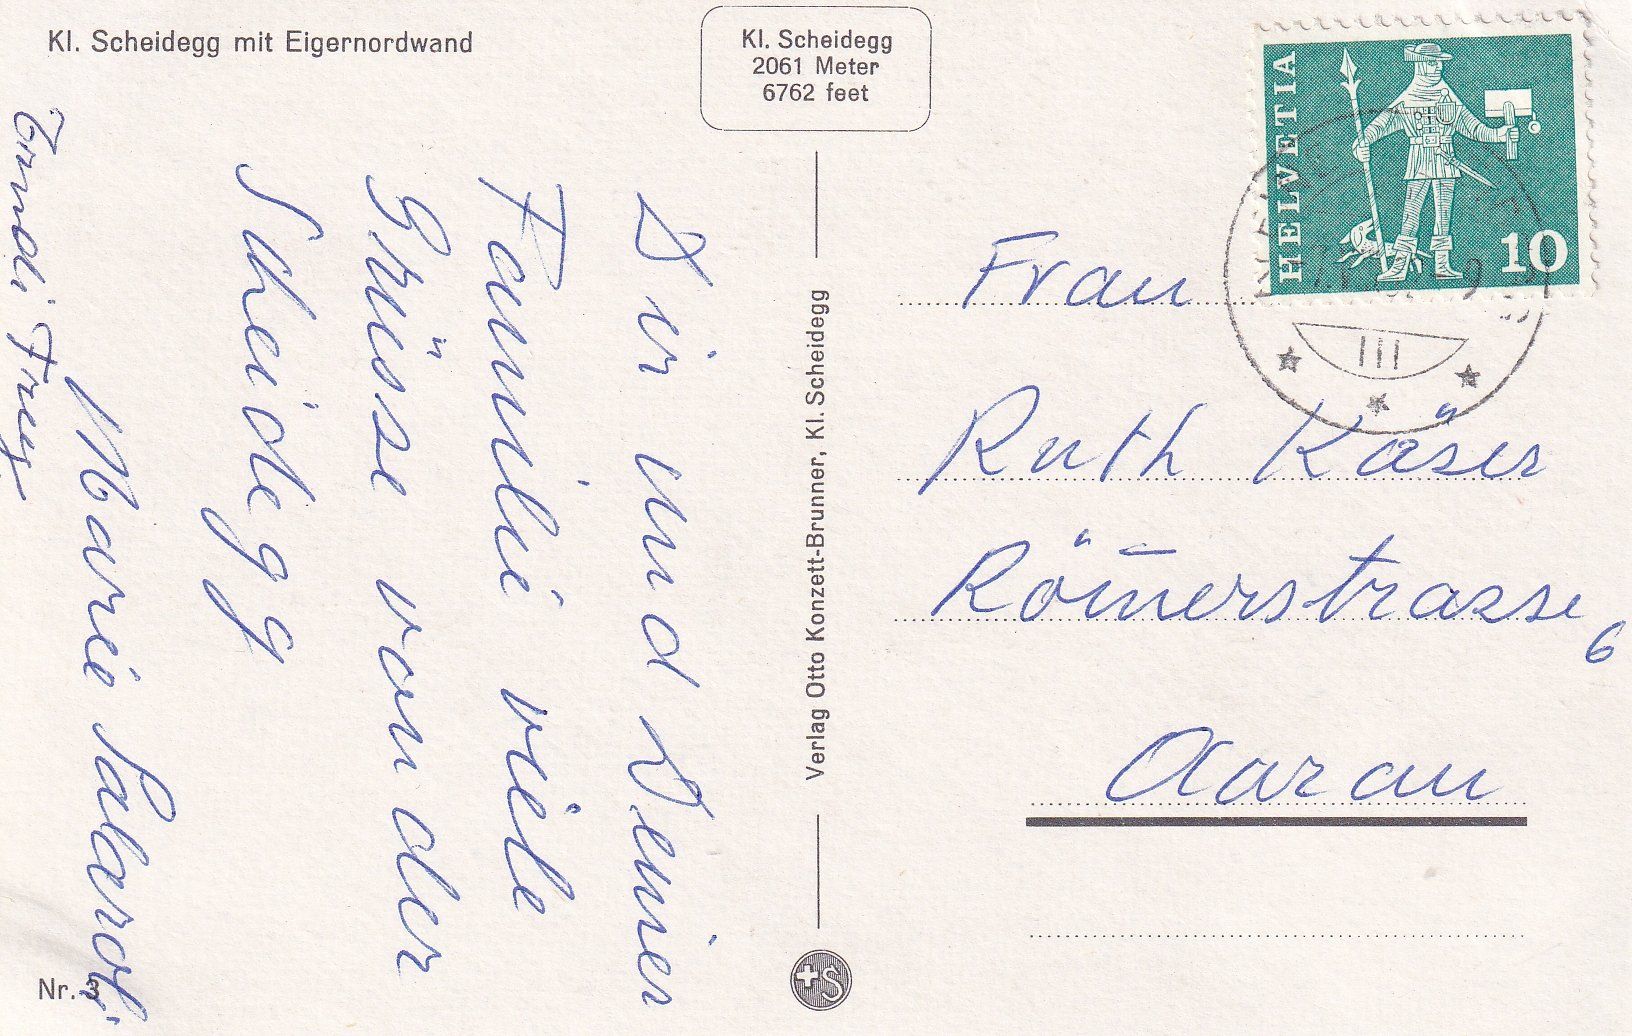 Kl. Scheidegg mit Eigernordwand
Kl. Scheidegg
2061 Meter
6762 feet
HELVETIA
10
Dir und Deiner
Familie viele
Grüsse von der
Scheidegg
Marie Salaroli
Trudi Frey
Nr. 3
Verlag Otto Konzett-Brunner, Kl. Scheidegg
+S
Frau
Ruth Käser
Römerstrasse
6
Aarau
III